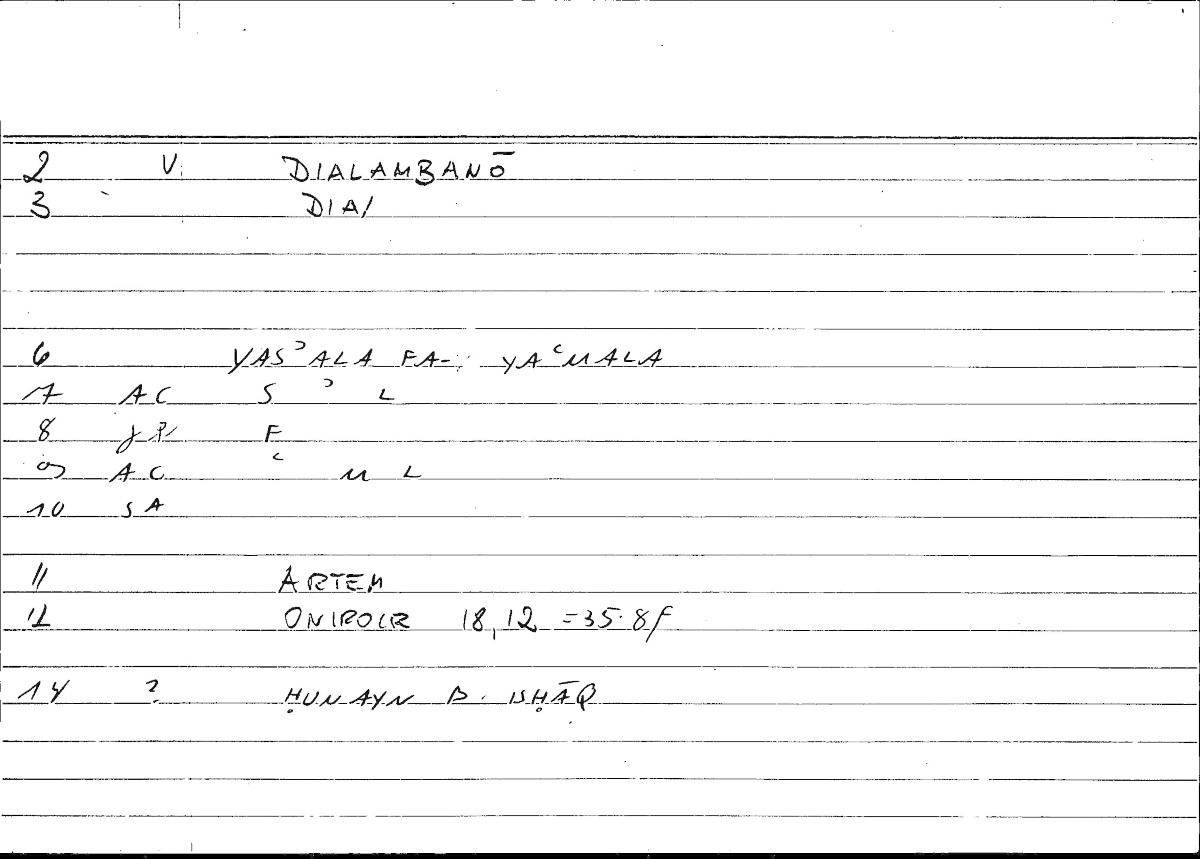 2 V. DIALAMBANŌ
3 DIA/
6 YASʾALA FA- YAʿMALA
7 AC S ʾ L
8 F
9 AC ʿ M L
10 SA
11 ARTEM
12 ONIROCR 18,12 =35.8f
14 ? ḤUNAYN B. ISḤĀQ